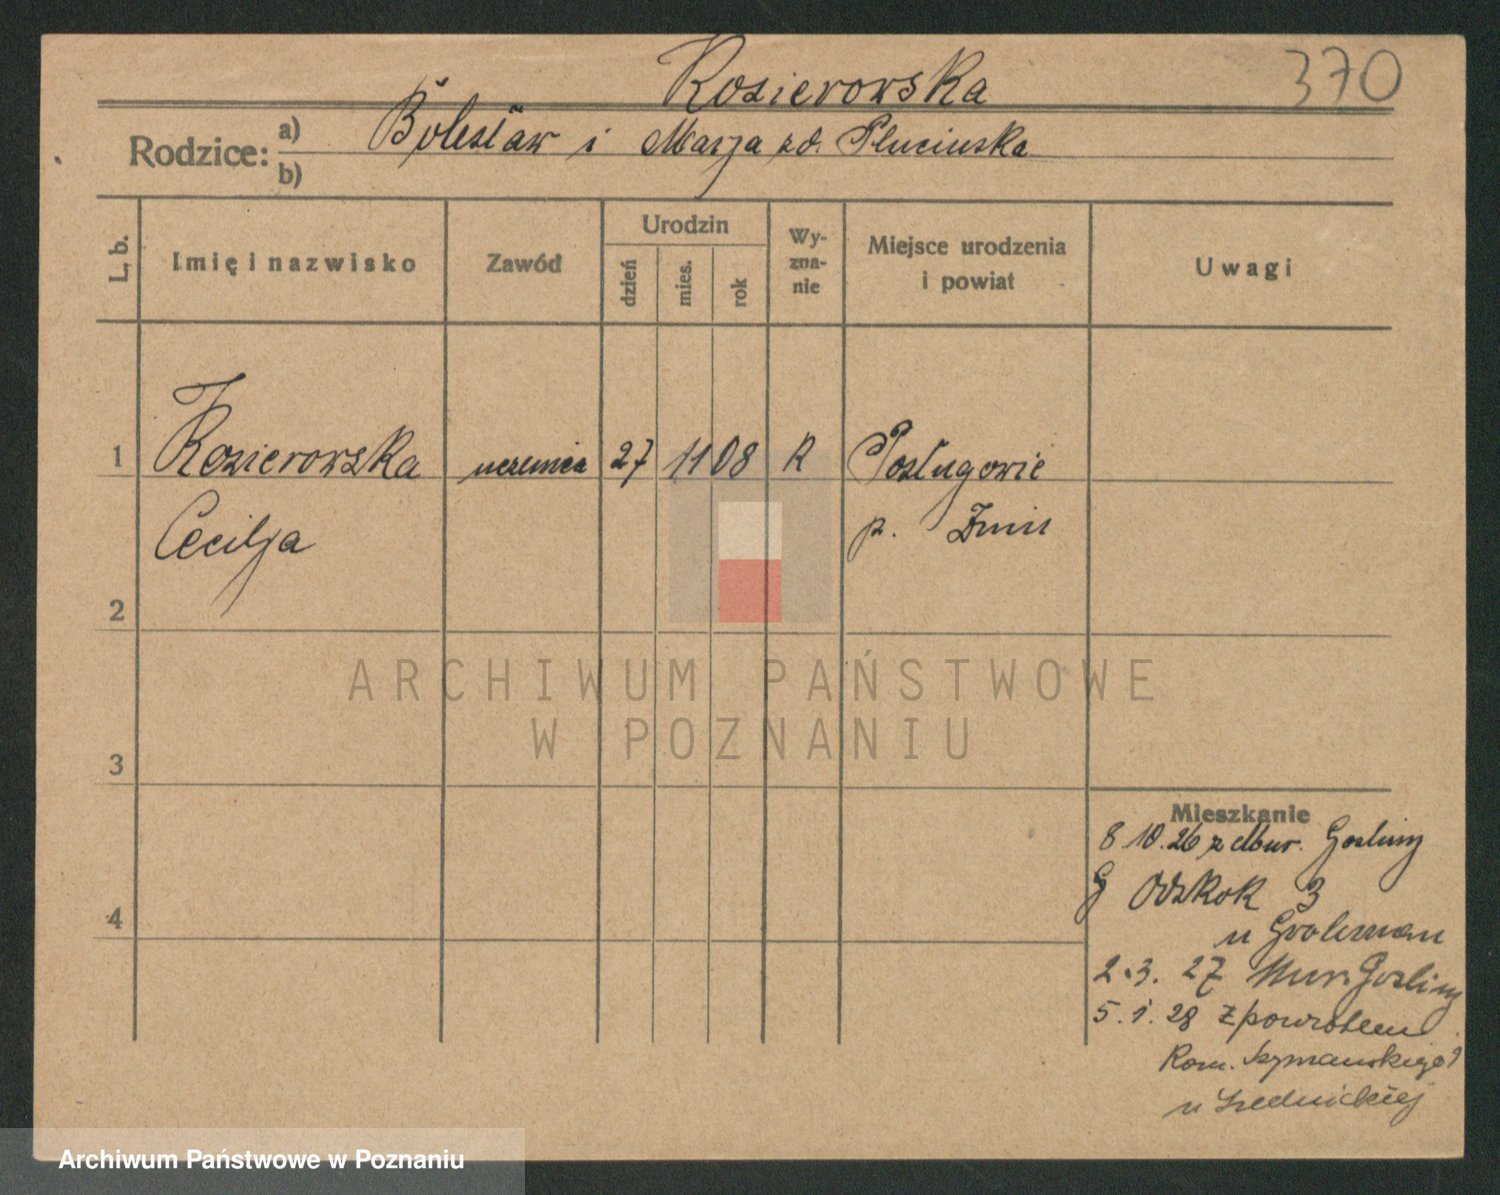 370
Kosierowska
Rodzice: a) Bolesław i Marja zd. Plucinska
b)
L. b.
Imię i nazwisko
Zawód
Urodzin
dzień
mies.
rok
Wy-
zna-
nie
Miejsce urodzenia
i powiat
Uwagi
1 Kosierowska uczenica 27 11 08 R
Cecilja
p. Żnin
2
3
4
Mieszkanie
8.10.26 z Mur. Gosliny
G Odskok 3
u Grolman
2.3. 27 Mur. Gosliny
5.1.28 z powrotem
Rom. Szymanskiego 9
u Szednickiej
ARCHIWUM PAŃSTWOWE
W POZNANIU
Archiwum Państwowe w Poznaniu